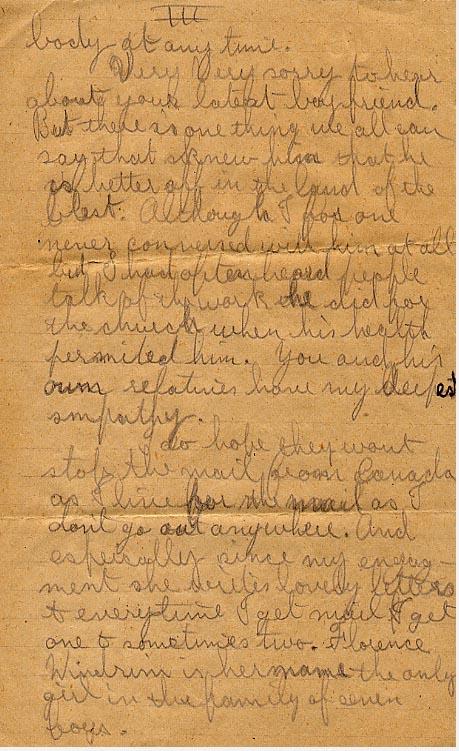 III
body at any time.
Very Very sorry to hear
about your latest boyfriend.
But there is one thing we all can
say that knew him that he
is better off in the land of the
blest. Although I for one
never conversed with him at all
but I had often heard people
talk of the work he did for
the church when his health
permited him. You and his
own relatives have my deepest
smpathy.
do hope they wont
stop the mail from Canada
as I live for the mail as I
dont go out anywhere. And
especially since my engag-
ment she writes lovely letters
& everytime I get mail I get
one & sometimes two. Florence
Windrim is her name the only
girl in the family of seven
boys.